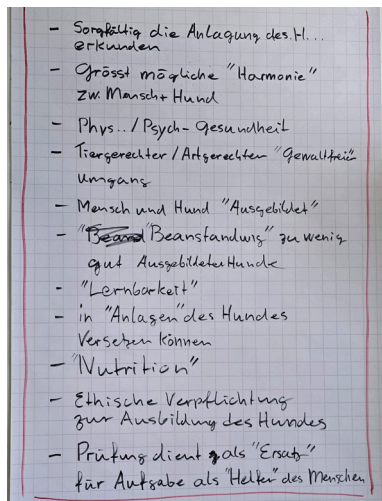 - Sorgfältig die Anlagung des. H...
erkunden
- Grösst mögliche "Harmonie"
zw. Mensch + Hund
- Phys.. / Psych - Gesundheit
- Tiergerechter / Artgerechten "Gewaltfrei"
umgang
- Mensch und Hund "Ausgebildet"
- "Beanstandung" zu wenig
gut Ausgebildeter Hunde
- "Lernbarkeit"
- in "Anlagen" des Hundes
Versetzen können
- "Nutrition"
- Ethische Verpflichtung
zur Ausbildung des Hundes
- Prüfung dient als "Ersatz"
für Aufgabe als "Helfer" des Menschen